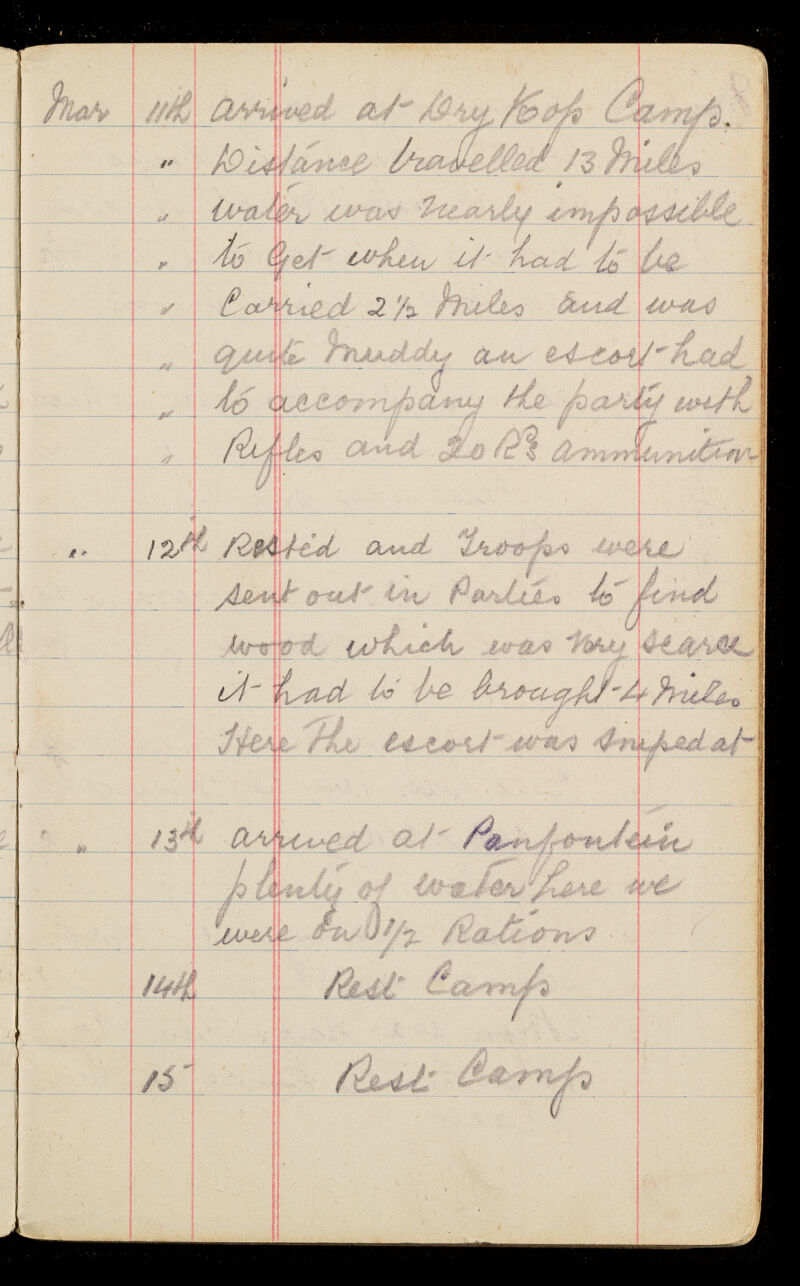 Mar 11th arrived at Dry Kop Camp.
" Distance travelled 13 Miles
" water was nearly impossible
" to Get when it had to be
" Carried 2 1/2 Miles and was
" quite Muddy an escort had
" to accompany the party with
" Rifles and 20 Rds ammunition
" 12th Rested and Troops were
sent out in Parties to find
wood which was very scarce
it had to be brought 4 Miles
Here The escort was sniped at
" 13th arrived at Panfontein
plenty of water here we
were on 1/2 Rations
14th Rest Camp
15 Rest Camp